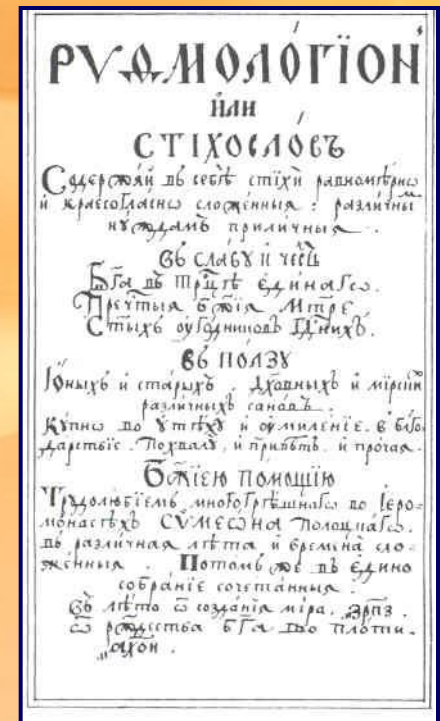 РѴѲМОЛО́ГЇОН
и҆лѝ
СТІХОСЛО́ВЪ
Содержѧй въ себѣ̀ стїхѝ равномѣ́рнѡ
и҆ краесогла́снѡ сложе́нныѧ : разли́чны
ну́ждамъ прили́чныѧ .
Въ сла́вꙋ и҆ че́сть
Бг҃а въ Трⷪ҇цѣ є҆ди́нагѡ .
Пречⷭ҇тыѧ Бж҃їѧ Мт҃ре .
Ст҃ыхъ оу҆го́дникѡвъ Гдⷭ҇нихъ .
Въ по́лзꙋ
Ю҆́ныхъ и҆ ста́рыхъ . Дх҃о́вныхъ и҆ мїрски́
разли́чныхъ сано́въ .
Ку́пнѡ во ᲂу҆тѣ́хꙋ и҆ оу҆миле́нїе . в бл҃го
да́рствїе . Похвалꙋ̀ , и҆ привѣ́тъ . и҆ про́чаѧ .
Бж҃їею по́мощїю
Трꙋдолю́бїемъ многогрѣ́шнагѡ во Їеро-
мона́сѣхъ СѴМЕѠ́НА По́лоцкагѡ .
въ разли́чнаѧ лѣ̑та и҆ времена̀ сло-
же́нныѧ . Пото́мъ же въ є҆ди́но
собра́нїе сочета́нныѧ .
Въ лѣ́то ѿ созда́нїѧ мі́ра . ҂зр҃пз .
ѿ рождества̀ Бг҃а во пло́ти .
҂ахо҃и .